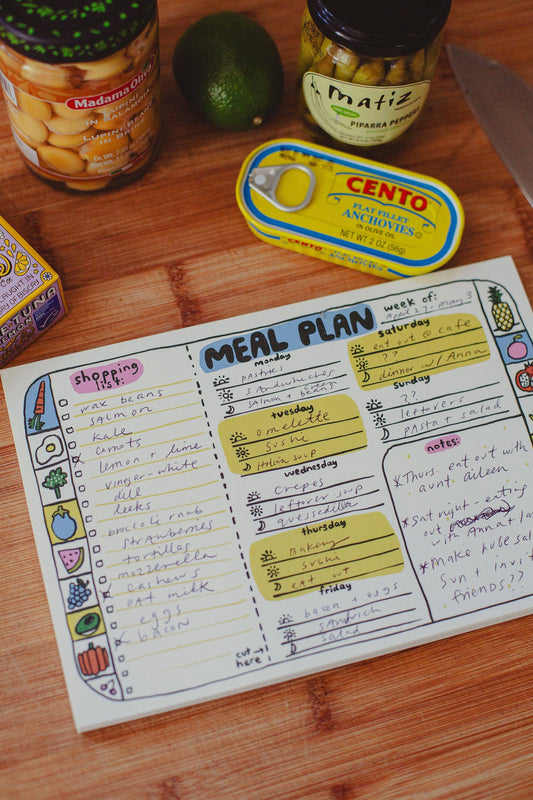 Madama Oliva
LUPINI
IN SALAMOIA
LUPINI BEANS
IN BRINE
matiz
PIPARRA PEPPERS
CENTO
FLAT FILLET
ANCHOVIES
IN OLIVE OIL
NET WT 2 OZ (56g)
CENTO
ANCHOVIES
CAUGHT IN
BAY OF BISCAY
TUNA
LEMON
shopping
list:
wax beans
salmon
kale
carrots
lemon + lime
vinegar-white
dill
leeks
broccoli raab
strawberries
tortillas
mozzerella
cashews
oat milk
eggs
bacon
cut →
here
MEAL PLAN
week of:
April 27 - May 3
monday
pastries
sandwhiches
salmon + green beans
tuesday
omelette
sushi
Italian soup
wednesday
crepes
leftover soup
quessedillas
thursday
Bakery
sushi
eat out
friday
bacon + eggs
sandwich
salad
saturday
eat out @ cafe
??
dinner w/ Anna
sunday
??
leftovers
pasta + salad
notes:
*Thurs. eat out with
aunt aileen
*Sat night - eating
out
with Anna
*Make huge
Sun + invi
friends??